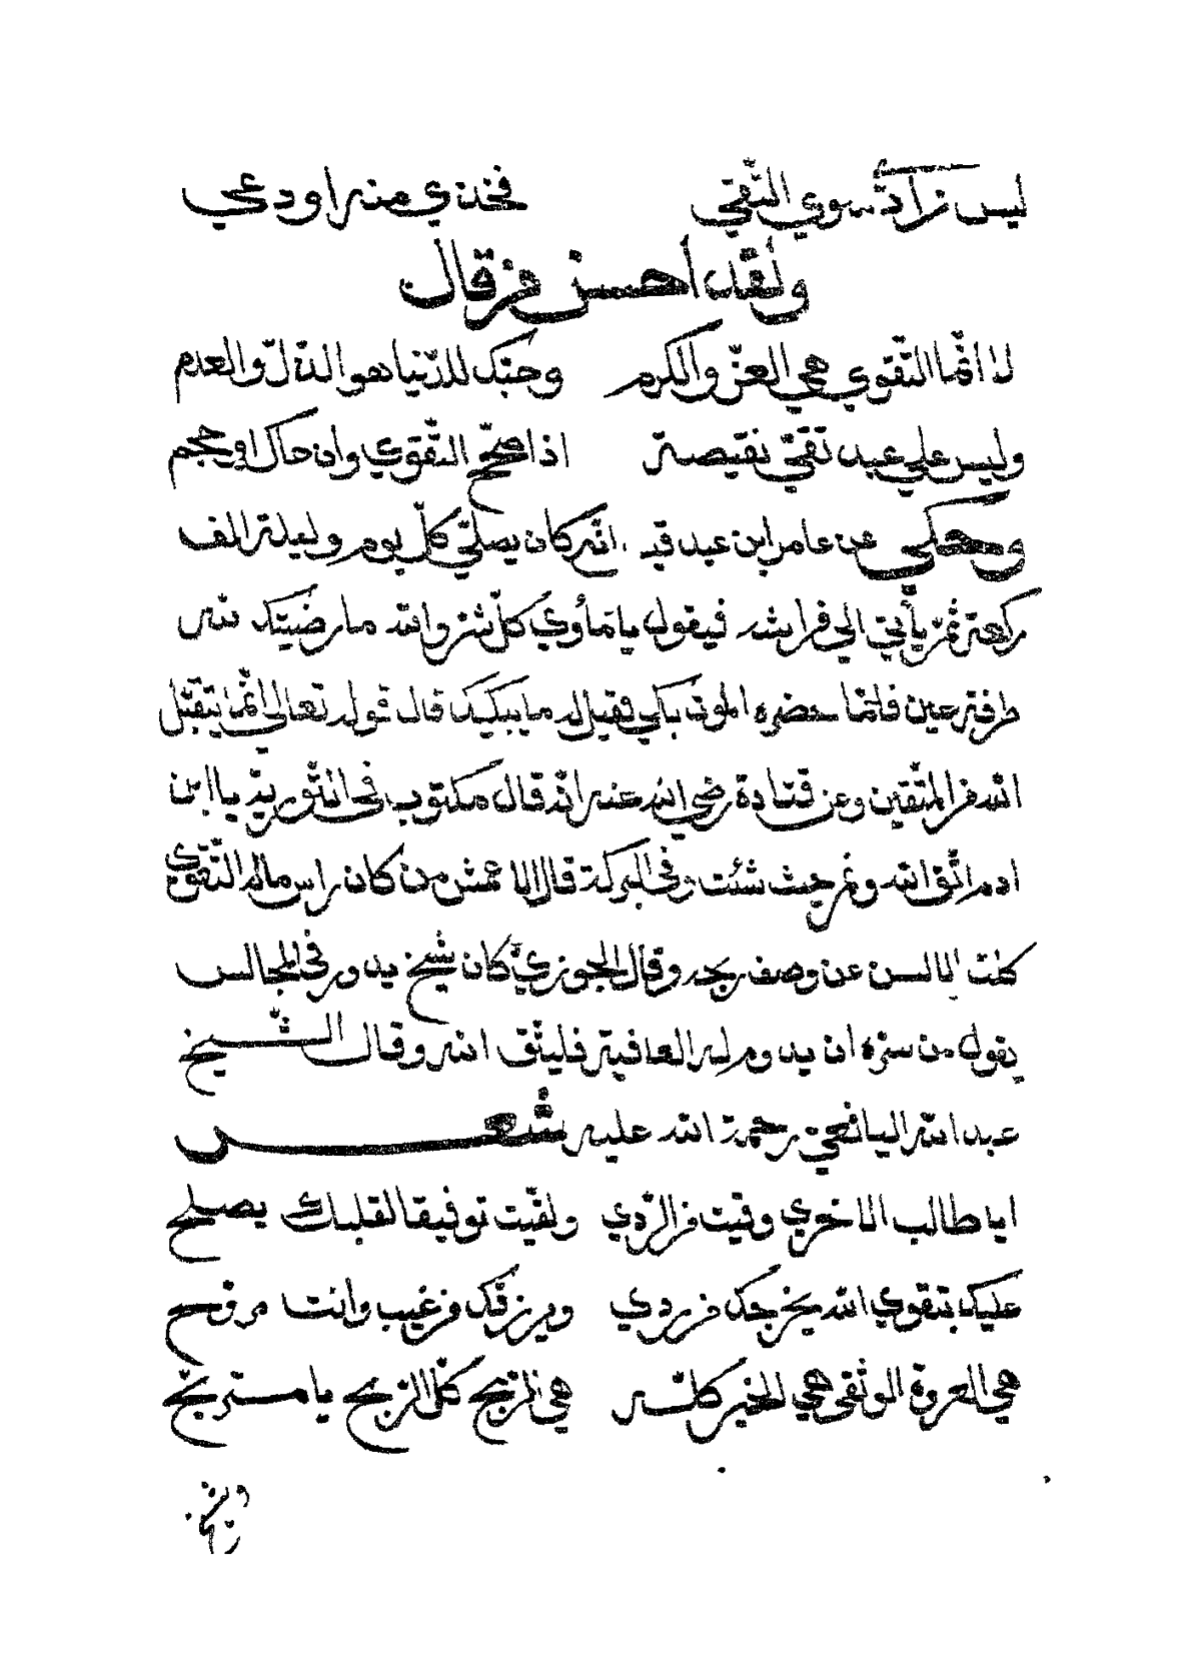 ليس زادٌ سوي التّقي فخذي منه او دعي
ولقد أحسن من قال
الا انّما التّقوي هي العزّ والكرم وحبّك للدّنيا هو الذلّ والعدم
وليس علي عبد تقيّ نقيصة اذا صحّح التّقوي وان حاك او حجم
وحكي عن عامر ابن عبد قيد انّه كان يصلّي كلّ يوم وليلة الف
ركعة ثمّ يأتي الي فراشه فيقول يا مأوي كلّ شرّ والله ما رضيتك لله
طرفة عين فلمّا حضره الموت بكي فقيل له ما يبكيك قال قوله تعالي انّما يتقبّل
الله من المتّقين وعن قتادة رضي الله عنه انه قال مكتوب في التّورية يا ابن
ادم اتّق الله ونم حيث شئت وفي البركة قال الاعمش من كان راس ماله التّقوي
كلّت الالسن عن وصف ربحه وقال الجوزيّ كان شيخ يدور في المجالس
يقول من سرّه ان يدوم له العافية فليتّق الله وقال الشّيخ
عبد الله اليافعيّ رحمة الله عليه شعر
ايا طالب الاخري وقيت من الرّدي ولقيّت توفيقا لقلبك يصلح
عليك بتقوي الله يخرجك من ردي ويرزقك من غيب وانت مروّح
هي العروة الوثقي هي الخير كلّه هي الرّبح كلّ الرّبح يا مستربح